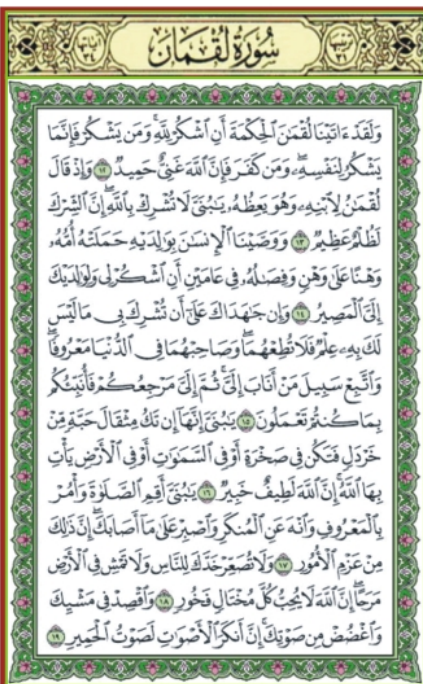 ترتيبها ٣١ سُورَةُ لُقْمَانَ آياتها ٣٤
وَلَقَدْ ءَاتَيْنَا لُقْمَٰنَ ٱلْحِكْمَةَ أَنِ ٱشْكُرْ لِلَّهِ ۚ وَمَن يَشْكُرْ فَإِنَّمَا
يَشْكُرُ لِنَفْسِهِۦ ۖ وَمَن كَفَرَ فَإِنَّ ٱللَّهَ غَنِىٌّ حَمِيدٌ ١٢ وَإِذْ قَالَ
لُقْمَٰنُ لِٱبْنِهِۦ وَهُوَ يَعِظُهُۥ يَٰبُنَىَّ لَا تُشْرِكْ بِٱللَّهِ ۖ إِنَّ ٱلشِّرْكَ
لَظُلْمٌ عَظِيمٌ ١٣ وَوَصَّيْنَا ٱلْإِنسَٰنَ بِوَٰلِدَيْهِ حَمَلَتْهُ أُمُّهُۥ
وَهْنًا عَلَىٰ وَهْنٍ وَفِصَٰلُهُۥ فِى عَامَيْنِ أَنِ ٱشْكُرْ لِى وَلِوَٰلِدَيْكَ
إِلَىَّ ٱلْمَصِيرُ ١٤ وَإِن جَٰهَدَاكَ عَلَىٰٓ أَن تُشْرِكَ بِى مَا لَيْسَ
لَكَ بِهِۦ عِلْمٌ فَلَا تُطِعْهُمَا ۖ وَصَاحِبْهُمَا فِى ٱلدُّنْيَا مَعْرُوفًا ۖ
وَٱتَّبِعْ سَبِيلَ مَنْ أَنَابَ إِلَىَّ ۚ ثُمَّ إِلَىَّ مَرْجِعُكُمْ فَأُنَبِّئُكُم
بِمَا كُنتُمْ تَعْمَلُونَ ١٥ يَٰبُنَىَّ إِنَّهَآ إِن تَكُ مِثْقَالَ حَبَّةٍ مِّنْ
خَرْدَلٍ فَتَكُن فِى صَخْرَةٍ أَوْ فِى ٱلسَّمَٰوَٰتِ أَوْ فِى ٱلْأَرْضِ يَأْتِ
بِهَا ٱللَّهُ ۚ إِنَّ ٱللَّهَ لَطِيفٌ خَبِيرٌ ١٦ يَٰبُنَىَّ أَقِمِ ٱلصَّلَوٰةَ وَأْمُرْ
بِٱلْمَعْرُوفِ وَٱنْهَ عَنِ ٱلْمُنكَرِ وَٱصْبِرْ عَلَىٰ مَآ أَصَابَكَ ۖ إِنَّ ذَٰلِكَ
مِنْ عَزْمِ ٱلْأُمُورِ ١٧ وَلَا تُصَعِّرْ خَدَّكَ لِلنَّاسِ وَلَا تَمْشِ فِى ٱلْأَرْضِ
مَرَحًا ۖ إِنَّ ٱللَّهَ لَا يُحِبُّ كُلَّ مُخْتَالٍ فَخُورٍ ١٨ وَٱقْصِدْ فِى مَشْيِكَ
وَٱغْضُضْ مِن صَوْتِكَ ۚ إِنَّ أَنكَرَ ٱلْأَصْوَٰتِ لَصَوْتُ ٱلْحَمِيرِ ١٩